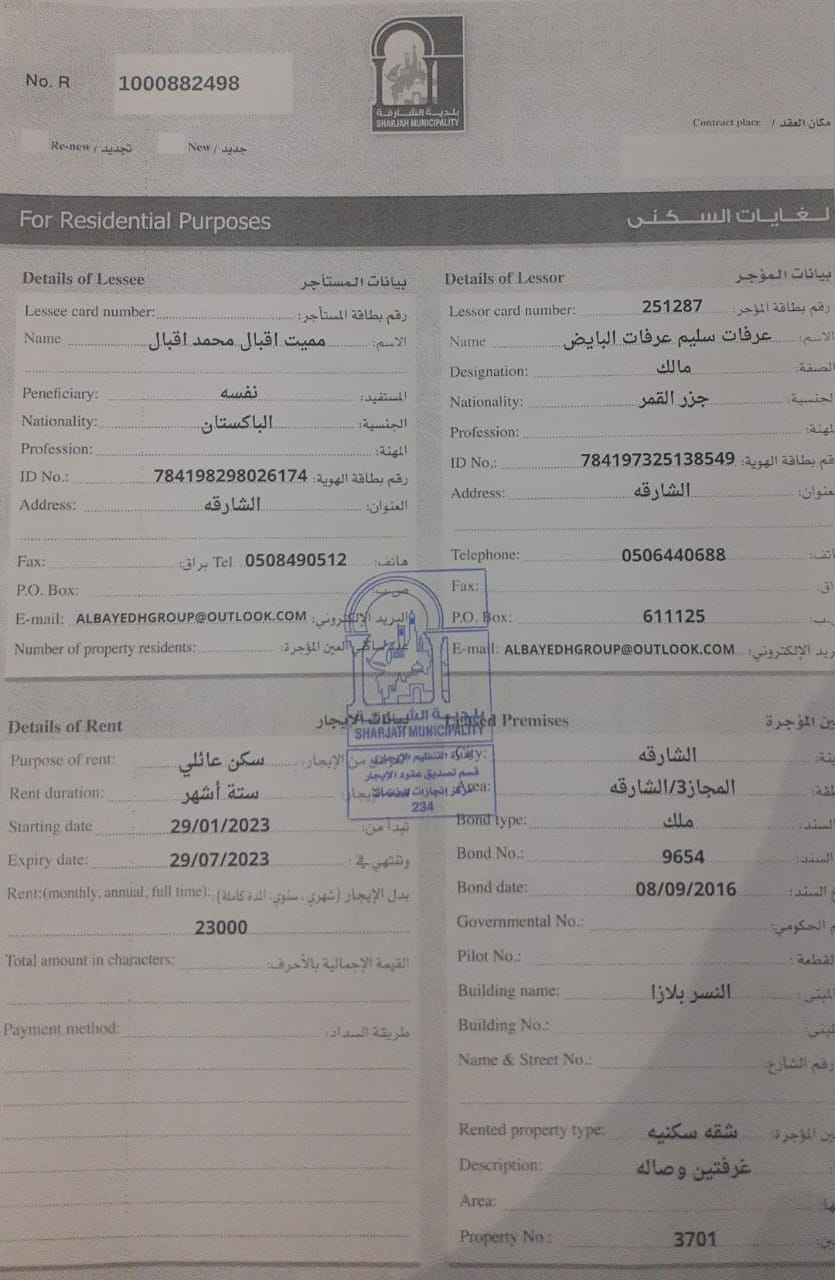 بلدية الشارقة
SHARJAH MUNICIPALITY
No. R 1000882498
Contract place / مكان العقد
Re-new / تجديد New / جديد
For Residential Purposes لغايات السكنى
Details of Lessee بيانات المستأجر
Lessee card number: رقم بطاقة المستأجر:
Name مميت اقبال محمد اقبال الاسم:
Peneficiary: نفسه المستفيد:
Nationality: الباكستان الجنسية:
Profession: المهنة:
ID No.: 784198298026174 رقم بطاقة الهوية:
Address: الشارقه العنوان:
Fax: براق: Tel. 0508490512 هاتف:
P.O. Box: ص.ب:
E-mail: ALBAYEDHGROUP@OUTLOOK.COM البريد الإلكتروني:
Number of property residents: العين المؤجرة:
Details of Lessor بيانات المؤجر
Lessor card number: 251287 رقم بطاقة المؤجر:
Name عرفات سليم عرفات البايض الاسم:
Designation: مالك الصفة:
Nationality: جزر القمر الجنسية:
Profession: المهنة:
ID No.: 784197325138549 رقم بطاقة الهوية:
Address: الشارقه العنوان:
Telephone: 0506440688
Fax:
P.O. Box: 611125
E-mail: ALBAYEDHGROUP@OUTLOOK.COM البريد الإلكتروني:
بلدية الشارقة
SHARJAH MUNICIPALITY
قسم تصديق عقود الإيجار
234
Details of Rent الإيجار
Purpose of rent: سكن عائلي من الإيجار:
Rent duration: ستة أشهر
Starting date 29/01/2023 تبدأ من:
Expiry date: 29/07/2023 وتنتهي في:
Rent:(monthly, annual, full time): بدل الإيجار (شهري، سنوي، المدة كاملة):
23000
Total amount in characters: القيمة الإجمالية بالأحرف:
Payment method: طريقة السداد:
Premises المؤجرة
City: الشارقه
المجاز3/الشارقه
Bond type: ملك السند:
Bond No.: 9654 السند:
Bond date: 08/09/2016 السند:
Governmental No.: الحكومي:
Pilot No.: القطعة:
Building name: النسر بلازا المبنى:
Building No.:
Name & Street No.: رقم الشارع:
Rented property type: شقه سكنيه المؤجرة:
Description: غرفتين وصاله
Area:
Property No.: 3701